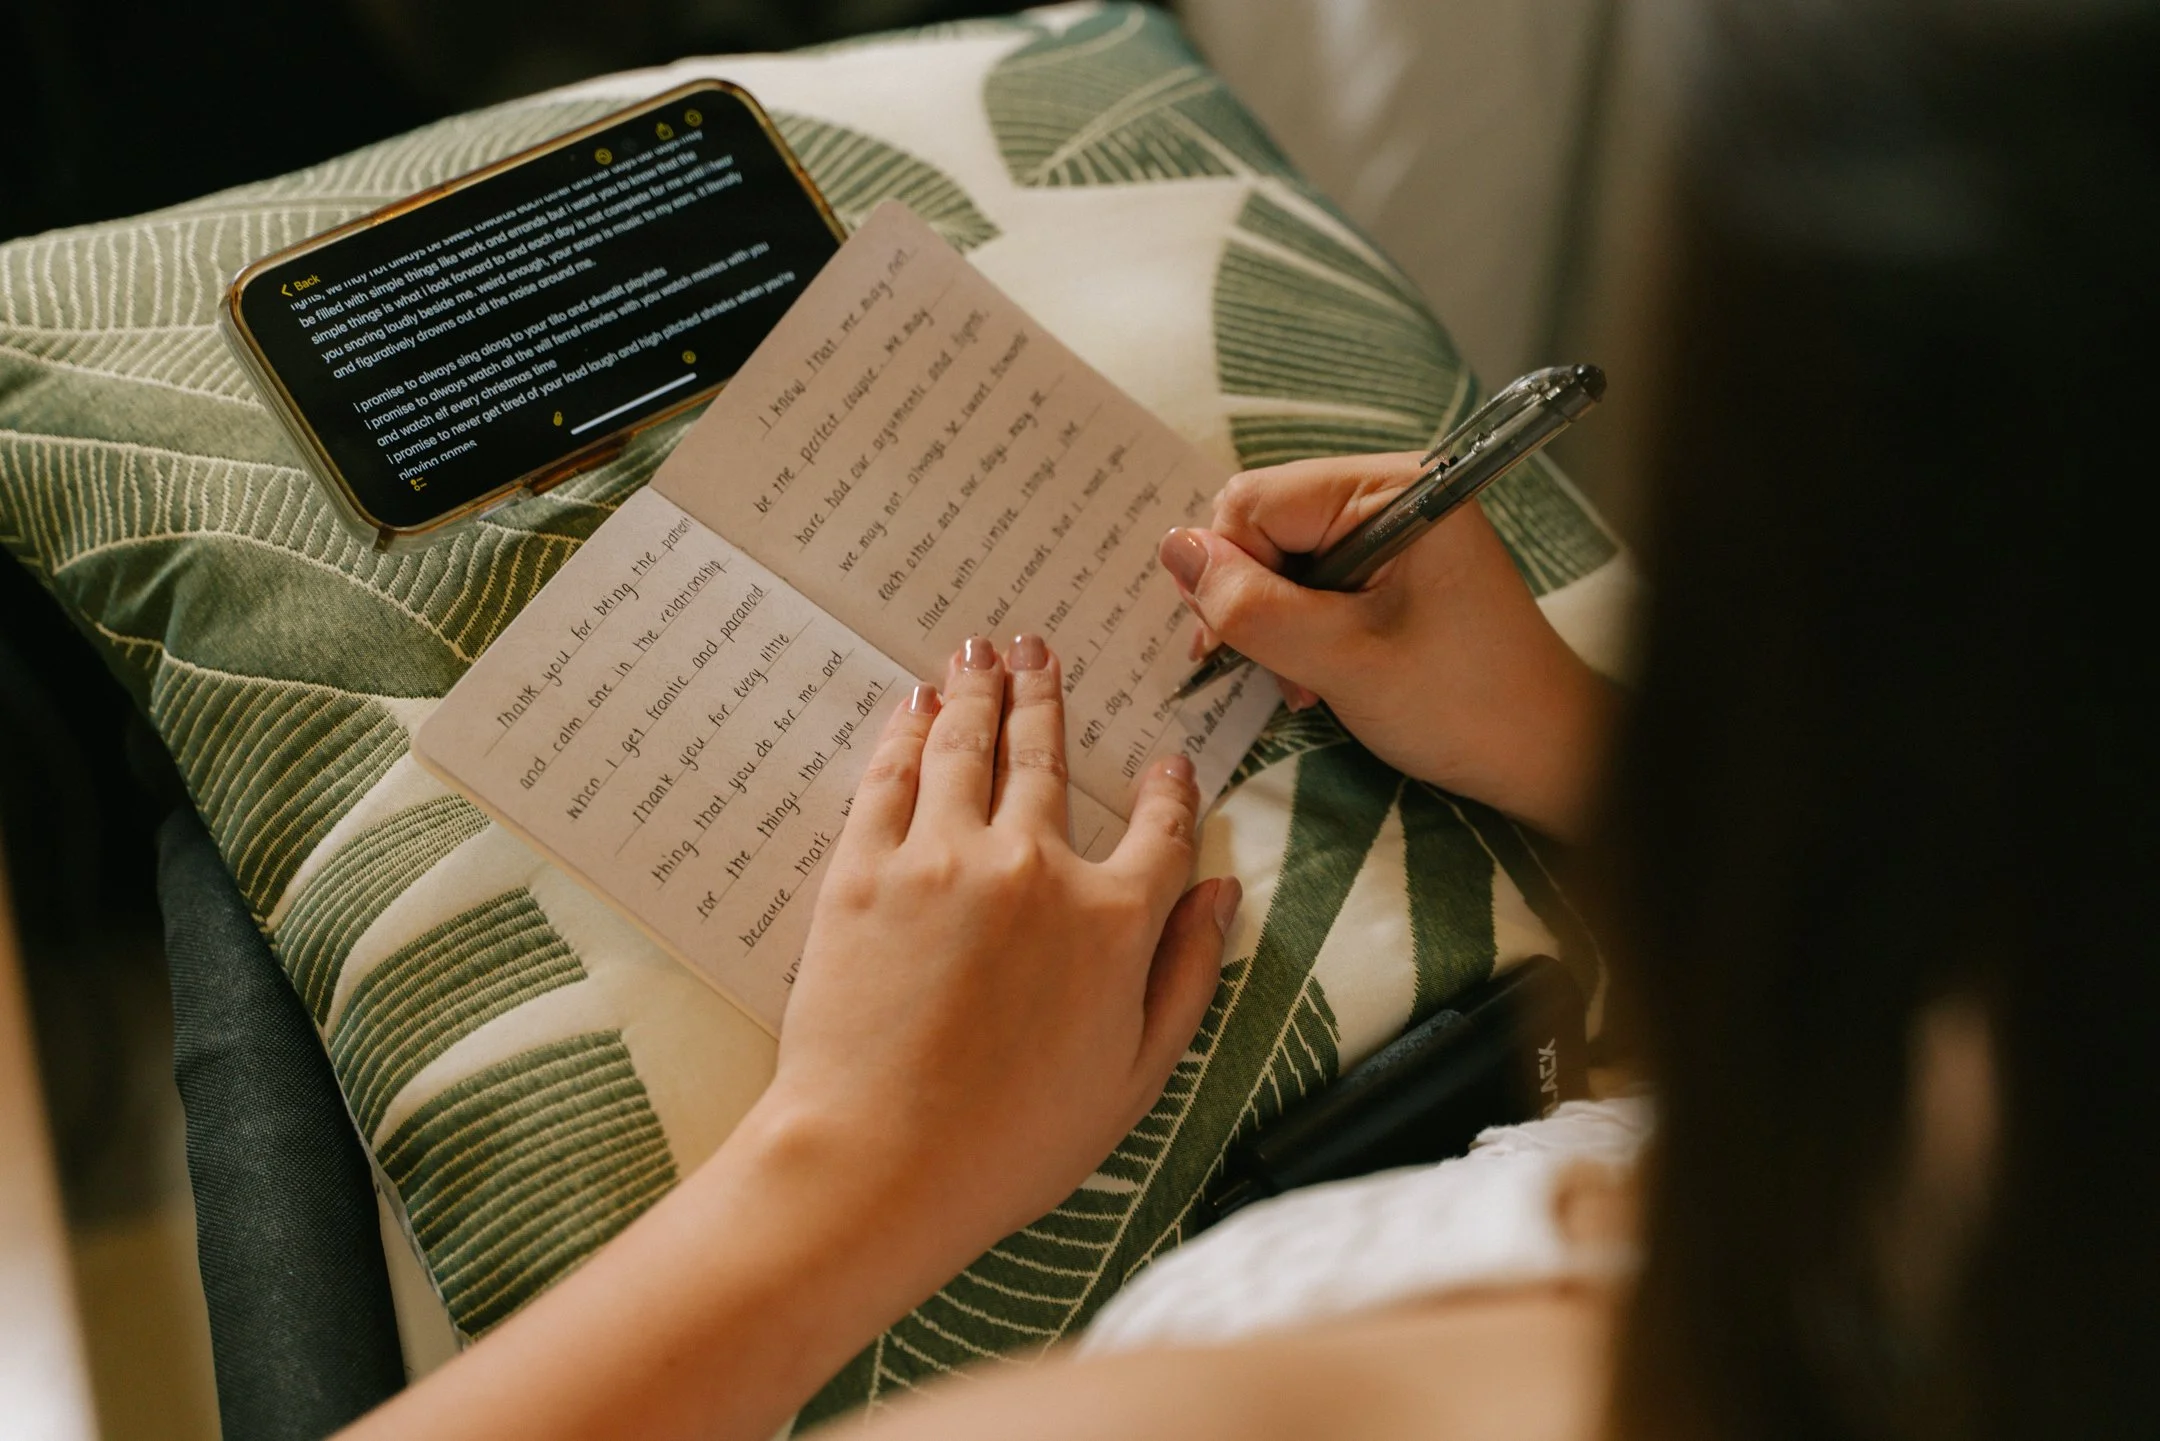 Back
fights, we may not always be sweet towards each other and our days may
be filled with simple things like work and errands but i want you to know that the
simple things is what i look forward to and each day is not complete for me until i hear
you snoring loudly beside me. weird enough, your snore is music to my ears. it literally
and figuratively drowns out all the noise around me.
i promise to always sing along to your tito and skwalit playlists
i promise to always watch all the will ferrel movies with you watch movies with you
and watch elf every christmas time
i promise to never get tired of your loud laugh and high pitched shrieks when you're
playing games
Thank you for being the patient
and calm one in the relationship
when I get frantic and paranoid
Thank you for every little
thing that you do for me and
for the things that you don't
because that's
I know that we may not
be the perfect couple, we may
have had our arguments and fights,
we may not always be sweet towards
each other and our days may be
filled with simple things like
and errands but I want you
that the simple things
what I look forward
each day is not
until I
Do all things